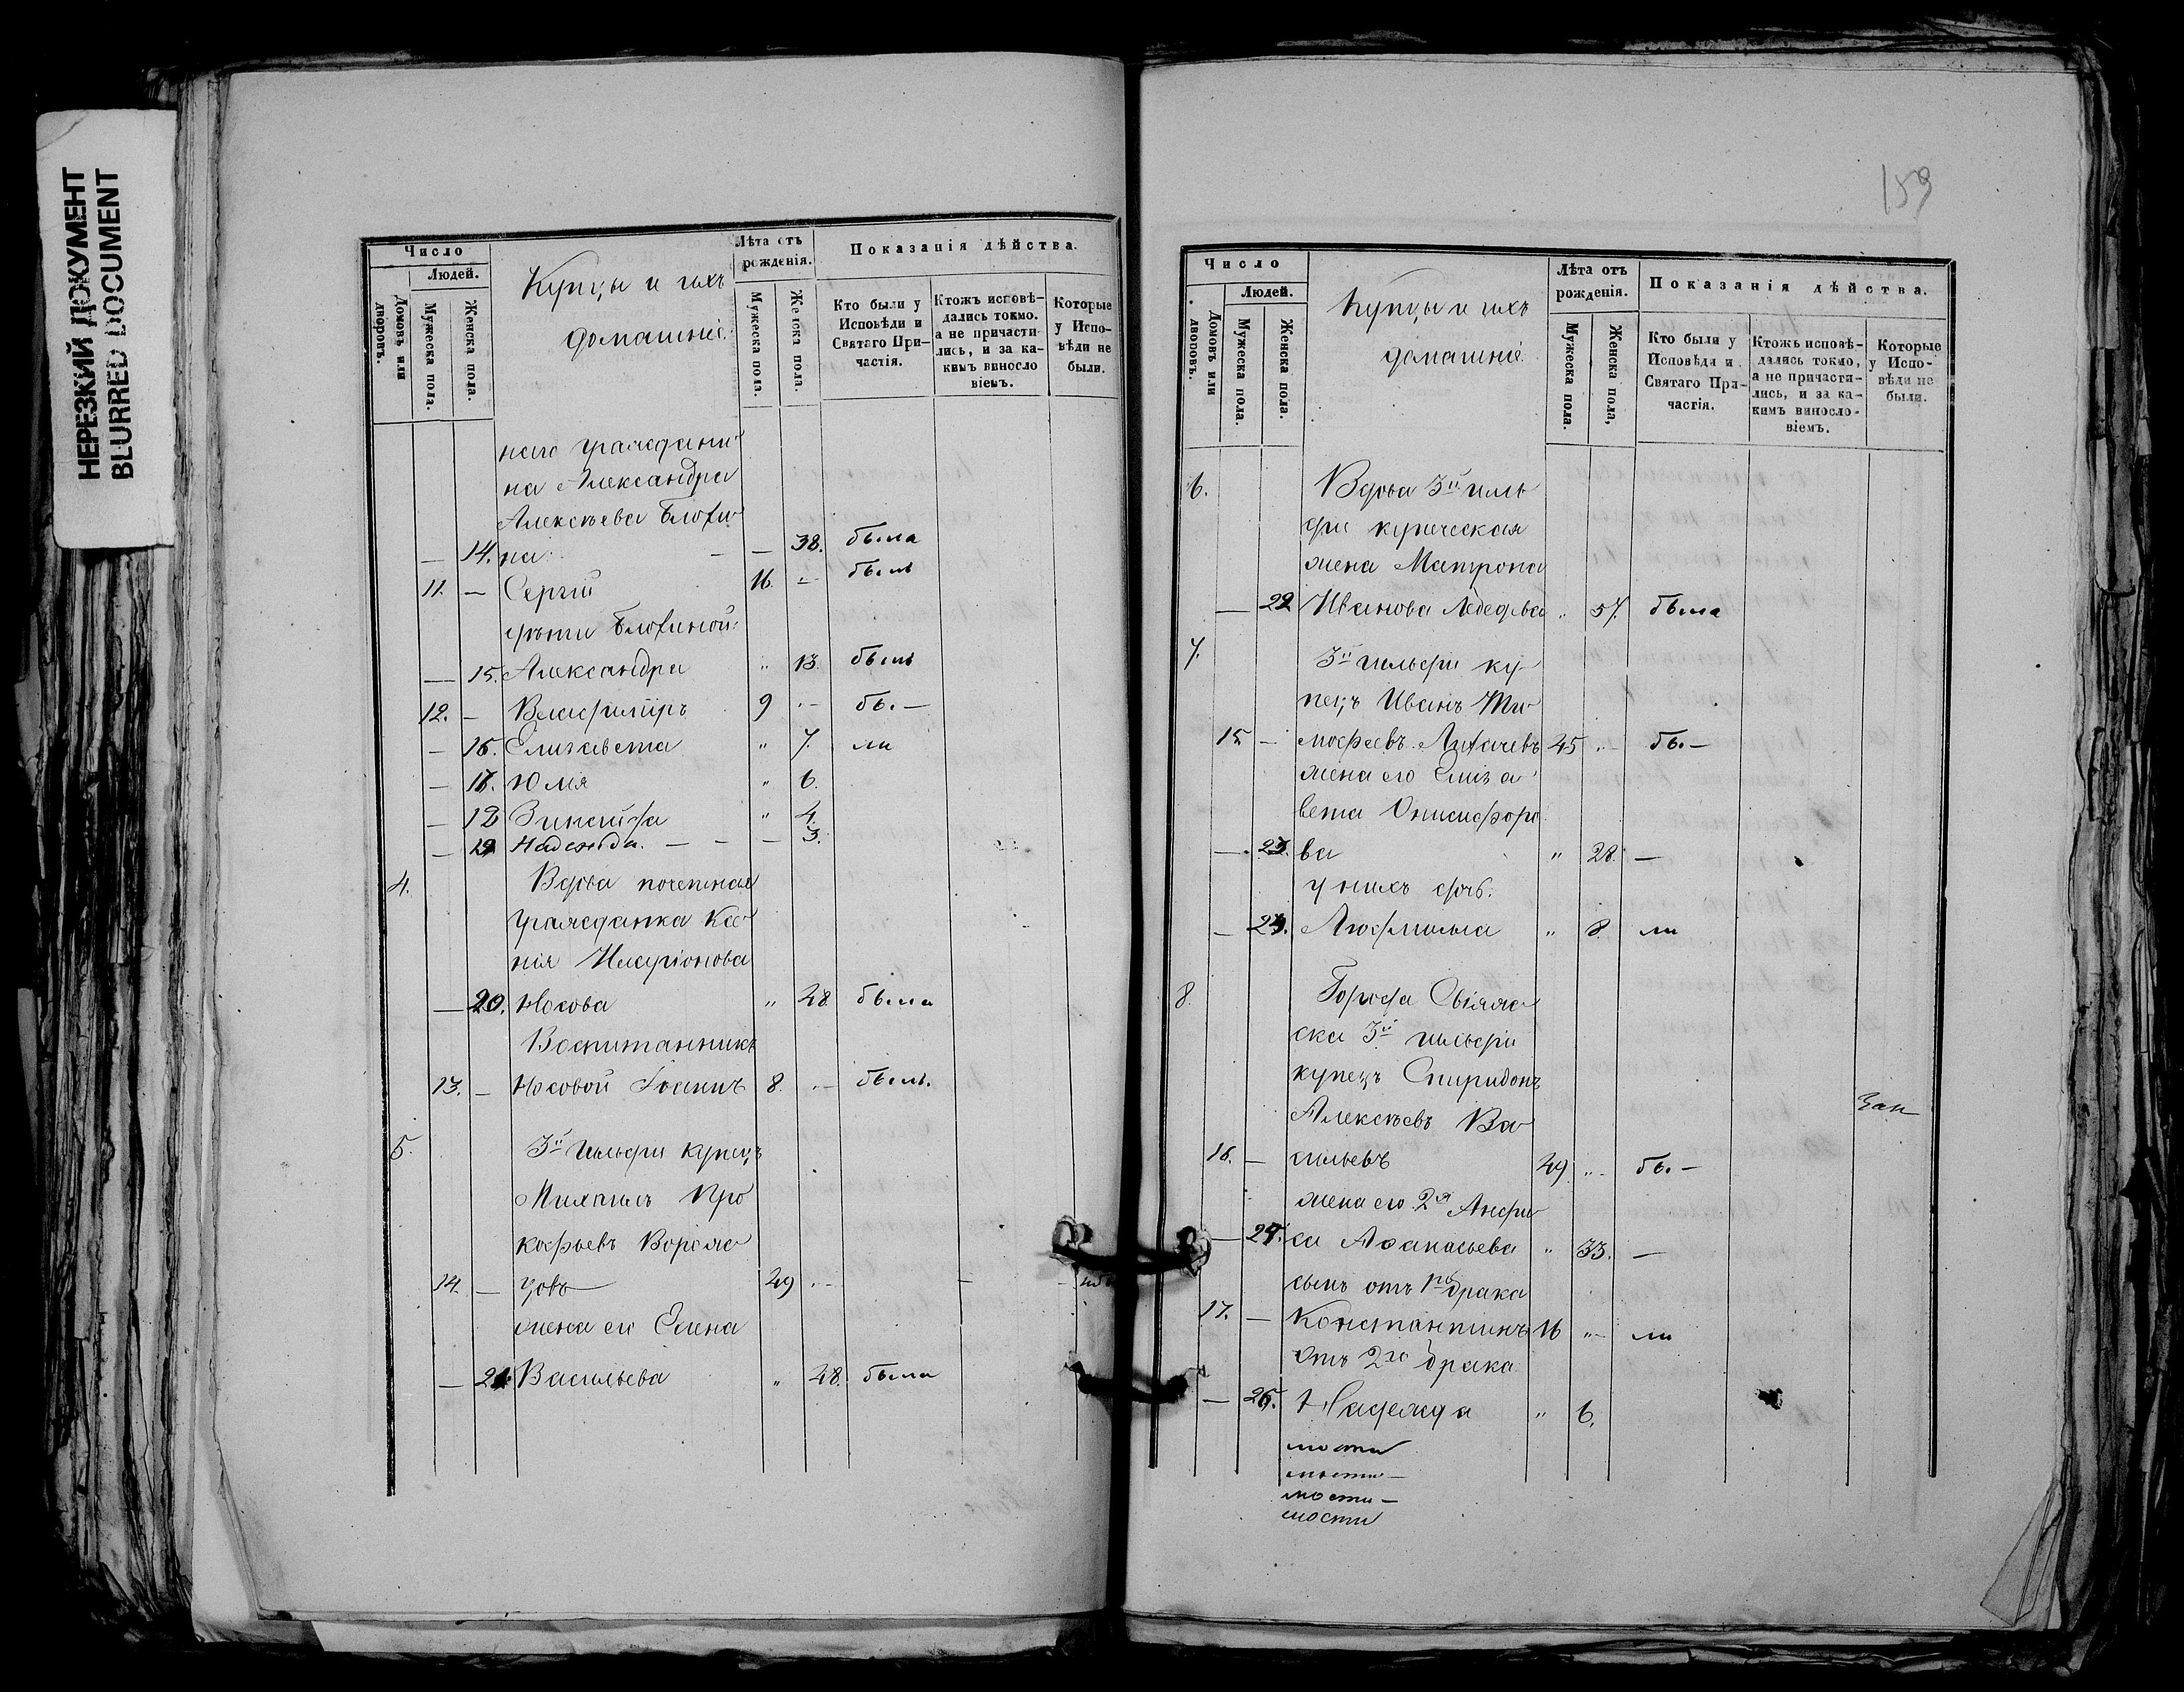 НЕРЕЗКИЙ ДОКУМЕНТ
BLURRED DOCUMENT
Число
Людей.
Домовъ или дворовъ.
Мужеска пола.
Женска пола.
Купцы и ихъ
домашніе.
Лѣта отъ рожденія.
Мужеска пола.
Женска пола.
Показанія дѣйства.
Кто были у Исповѣди и Святаго Причастія.
Ктожъ исповѣдались токмо, а не причастились, и за какимъ винословіемъ.
Которые у Исповѣди не были.
наго граждани
на Александра
Алексѣева Блохи
— 14. на — — 38. была
11. — Сергій 16. — былъ
дѣти Блохиной:
— 15. Александра " 13. былъ
12. — Владиміръ 9 " — бы. —
— 16. Елизавета " 7. ли
— 17. Юлія " 6.
— 18 Зинаида " 4.
— 19 Надежда. — — — 3.
4. Вдова почетная
гражданка Ксе
нія Иларіонова
— 20. Носова " 48 была
Воспитанникъ
13. — Носовой Іоаннъ 8. " — былъ.
5. 3й гильдіи купецъ
Михаилъ Про
кофьевъ Вораж
14. — цовъ 49 " — — —
жена его Елена
— 21. Васильева " 48. была
159
Число
Людей.
Домовъ или дворовъ.
Мужеска пола.
Женска пола.
Купцы и ихъ
домашніе
Лѣта отъ рожденія.
Мужеска пола.
Женска пола,
Показанія дѣйства.
Кто были у Исповѣди и Святаго Причастія.
Ктожъ исповѣдались токмо, а не причастились, и за какимъ винословіемъ.
Которые у Исповѣди не были.
6. Вдова 3й гиль
діи купеческая
жена Матрона
— 22 Иванова Лебедева " 57. была
7. 3й гильдіи ку
пецъ Иванъ Ти
15. — мофеевъ Лихачевъ 45 " — бы. —
жена его Елиза
вета Онисифоро
— 23. ва " 28. —
у нихъ дочь.
— 24. Людмилла " 8. ли
8. Города Свіяж
ска 3й гильдіи
купецъ Спиридонъ
Алексѣевъ Ва
16. — сильевъ 49 " — бы. —
жена его 2я Анфи
— 25. са Афанасьева " 33. —
сынъ отъ 1го брака
17. — Константинъ 16 " — ли
отъ 2го брака
— 26. Надежда " 6.
мости
мости —
мости —
мости